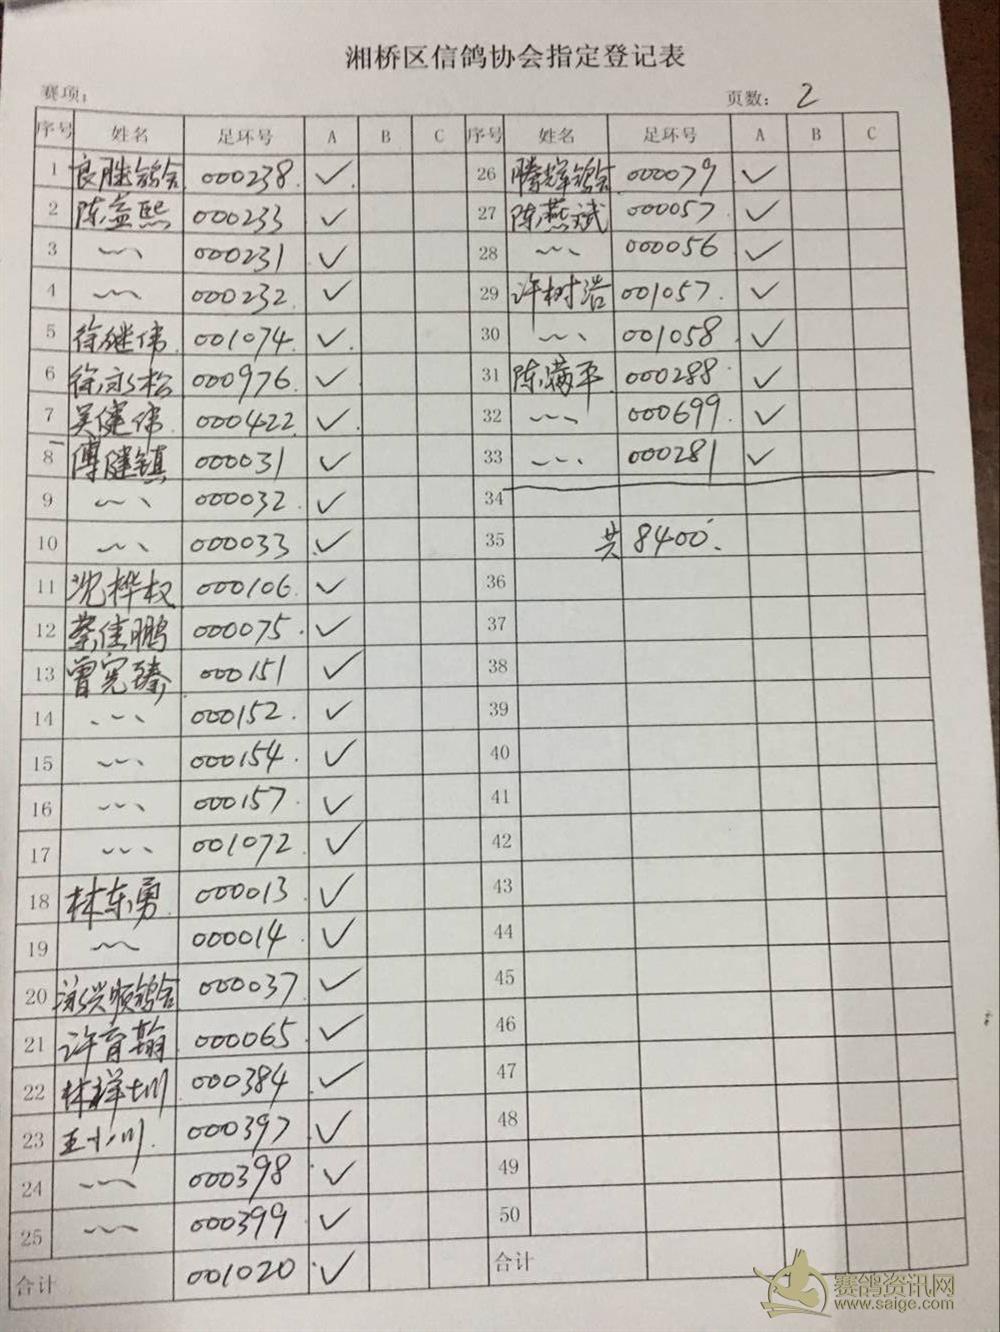 湘桥区信鸽协会指定登记表
赛项： 页数： 2
序号 姓名 足环号 A B C 序号 姓名 足环号 A B C
1 良胜鸽舍 000238. ✓ 26 腾辉鸽舍 000079 ✓
2 陈益熙 000233 ✓ 27 陈燕斌 000057 ✓
3 〃 000231 ✓ 28 〃 000056 ✓
4 〃 000232. ✓ 29 许树浩 001057. ✓
5 徐继伟 001074. ✓ 30 〃 001058 ✓
6 徐永松 000976. ✓ 31 陈满平 000288. ✓
7 吴健伟 000422 ✓ 32 〃 000699. ✓
8 傅健镇 000031 ✓ 33 〃 000281 ✓
9 〃 000032. ✓ 34
10 〃 000033 ✓ 35 共8400.
11 沈桦权 000106. ✓ 36
12 蔡佳鹏 000075. ✓ 37
13 曾宪臻 000151 ✓ 38
14 〃 000152. ✓ 39
15 〃 000154. ✓ 40
16 〃 000157. ✓ 41
17 〃 001072 ✓ 42
18 林东勇 000013 ✓ 43
19 〃 000014 ✓ 44
20 泳兴顺鸽舍 000037 ✓ 45
21 许育翰 000065 ✓ 46
22 林祥圳 000384 ✓ 47
23 王小川. 000397 ✓ 48
24 〃 000398 ✓ 49
25 〃 000399 ✓ 50
合计 001020 ✓ 合计
赛鸽资讯网
www.saige.com